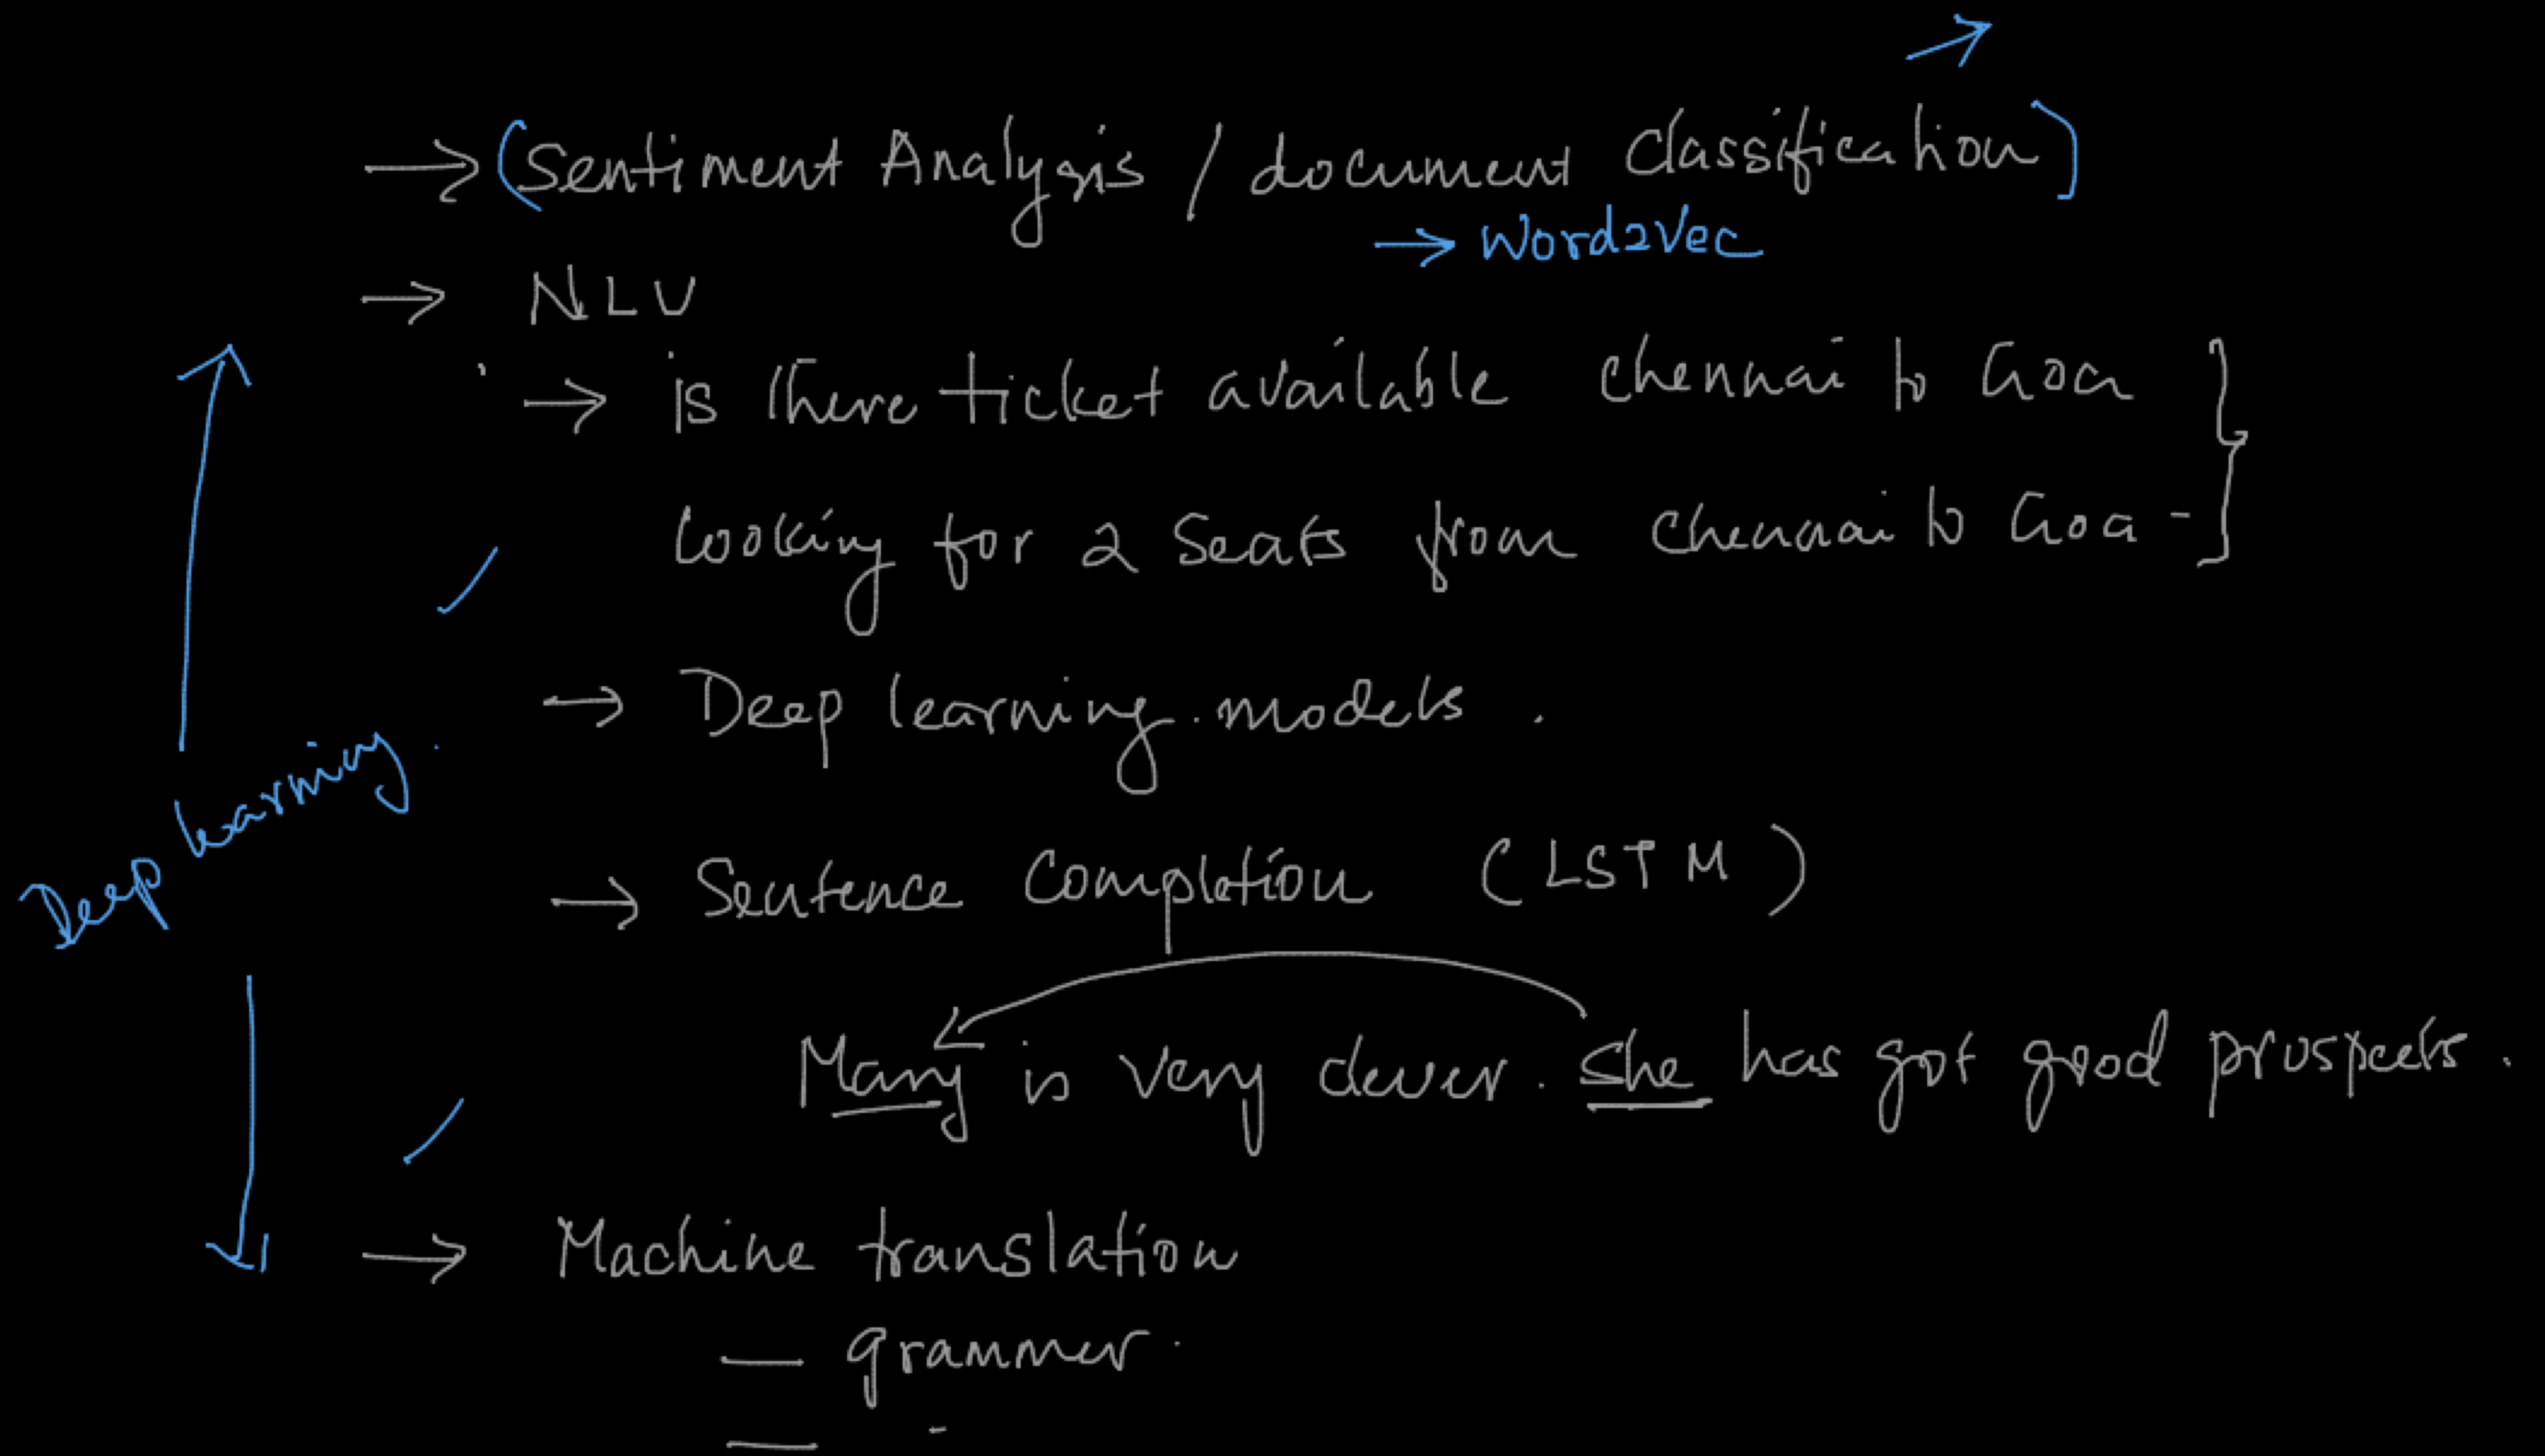 → (Sentiment Analysis / document Classification)
→ Word2Vec
→ NLU
→ is there ticket available Chennai to Goa
looking for 2 seats from Chennai to Goa -
→ Deep learning models.
Deep learning.
→ Sentence Completion (LSTM)
Mary is very clever. She has got good prospects.
→ Machine translation
— grammer.